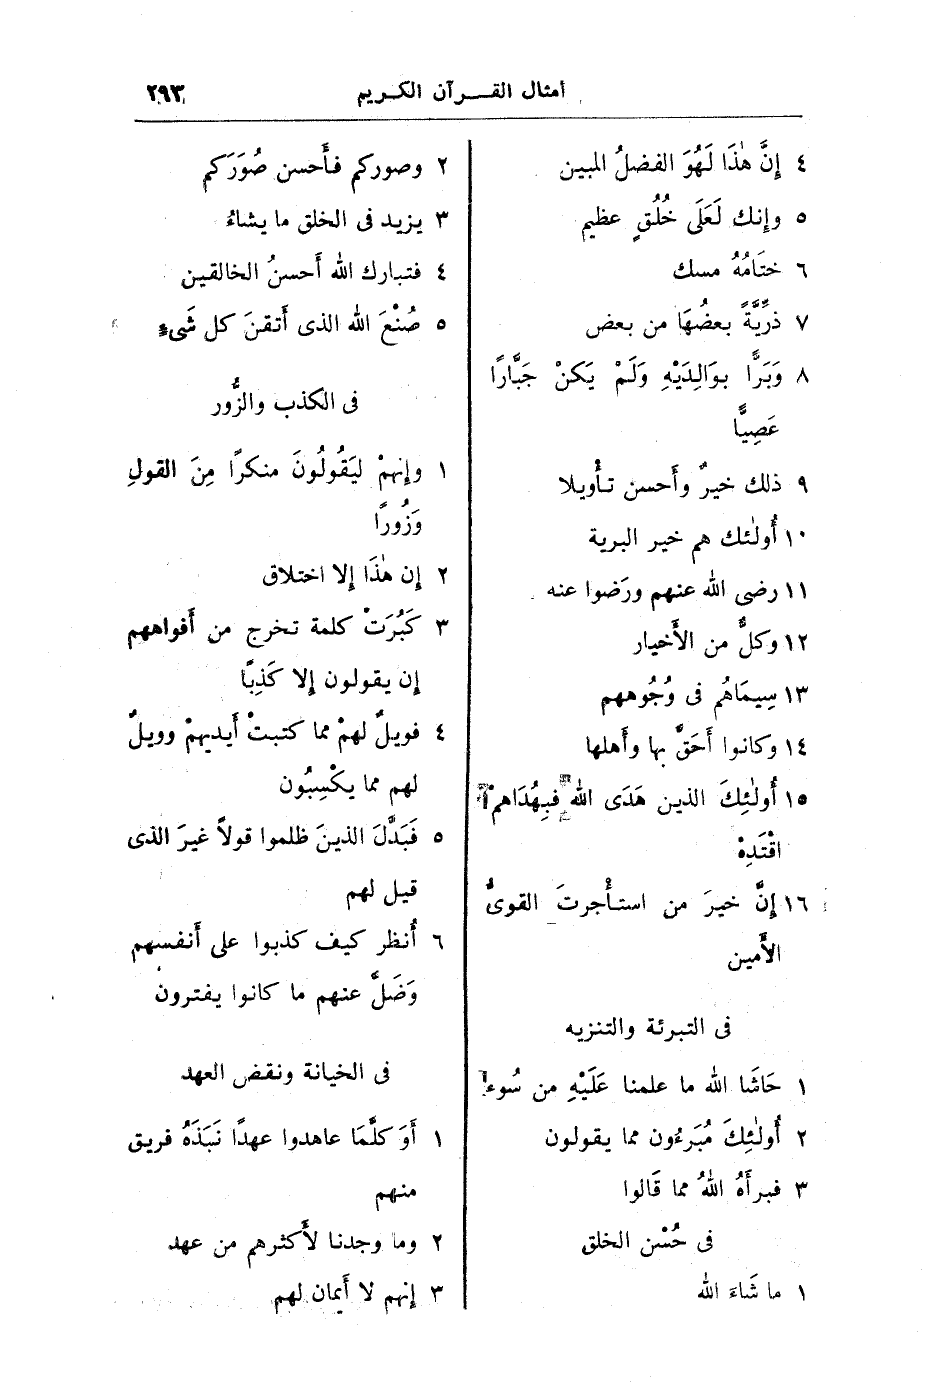 أمثال القـرآن الكـريم ٢٩٣
٤ إِنَّ هٰذَا لَهُوَ الفضلُ المبين
٥ وإنك لَعَلَى خُلُقٍ عظيم
٦ ختَامُهُ مسك
٧ ذرِّيَّةً بعضُهَا من بعض
٨ وَبَرًّا بوَالِدَيْهِ وَلَمْ يَكنْ جَبَّارًا
عَصِيًّا
٩ ذلك خيرٌ وأَحسن تأْويلا
١٠ أُولٰئك هم خير البرية
١١ رضى الله عنهم ورَضوا عنه
١٢ وكلٌّ من الأَخيار
١٣ سِيمَاهُم فى وُجُوههم
١٤ وكانوا أَحَقَّ بها وأَهلها
١٥ أُولٰئِكَ الذين هَدَى الله فبِهُدَاهمْ
اقْتَدِهْ
١٦ إِنَّ خيرَ من استأْجرتَ القوىُّ
الأَمين
فى التبرئة والتنزيه
١ حَاشَا الله ما علمنا عَلَيْهِ من سُوء
٢ أُولٰئِكَ مُبَرءُون مما يقولون
٣ فبرأَهُ اللهُ مما قَالوا
فى حُسْن الخلق
١ ما شَاءَ الله
٢ وصوركم فأَحسن صُوَرَكم
٣ يزيد فى الخلق ما يشاءُ
٤ فتبارك الله أَحسنُ الخالقين
٥ صُنْعَ الله الذى أَتقنَ كل شَىءٍ
فى الكذب والزُّور
١ وإِنهمْ ليَقُولُونَ منكرًا مِنَ القولِ
وَزُورًا
٢ إِن هٰذَا إِلا اختلاق
٣ كَبُرَتْ كلمة تخرج من أَفواههم
إِن يقولون إِلا كَذِبًا
٤ فويلٌ لهمْ مما كتبتْ أَيديهمْ وويلٌ
لهم مما يكْسِبُون
٥ فَبَدَّلَ الذينَ ظلموا قولاً غيرَ الذى
قيل لهم
٦ أُنظر كيف كذبوا على أَنفسهم
وَضَلَّ عنهم ما كانوا يفترون
فى الخيانة ونقض العهد
١ أَوَ كلَّمَا عاهدوا عهدًا نَبَذَهُ فريق
منهم
٢ وما وجدنا لأَكثرهم من عهد
٣ إِنهم لا أَيمان لهم